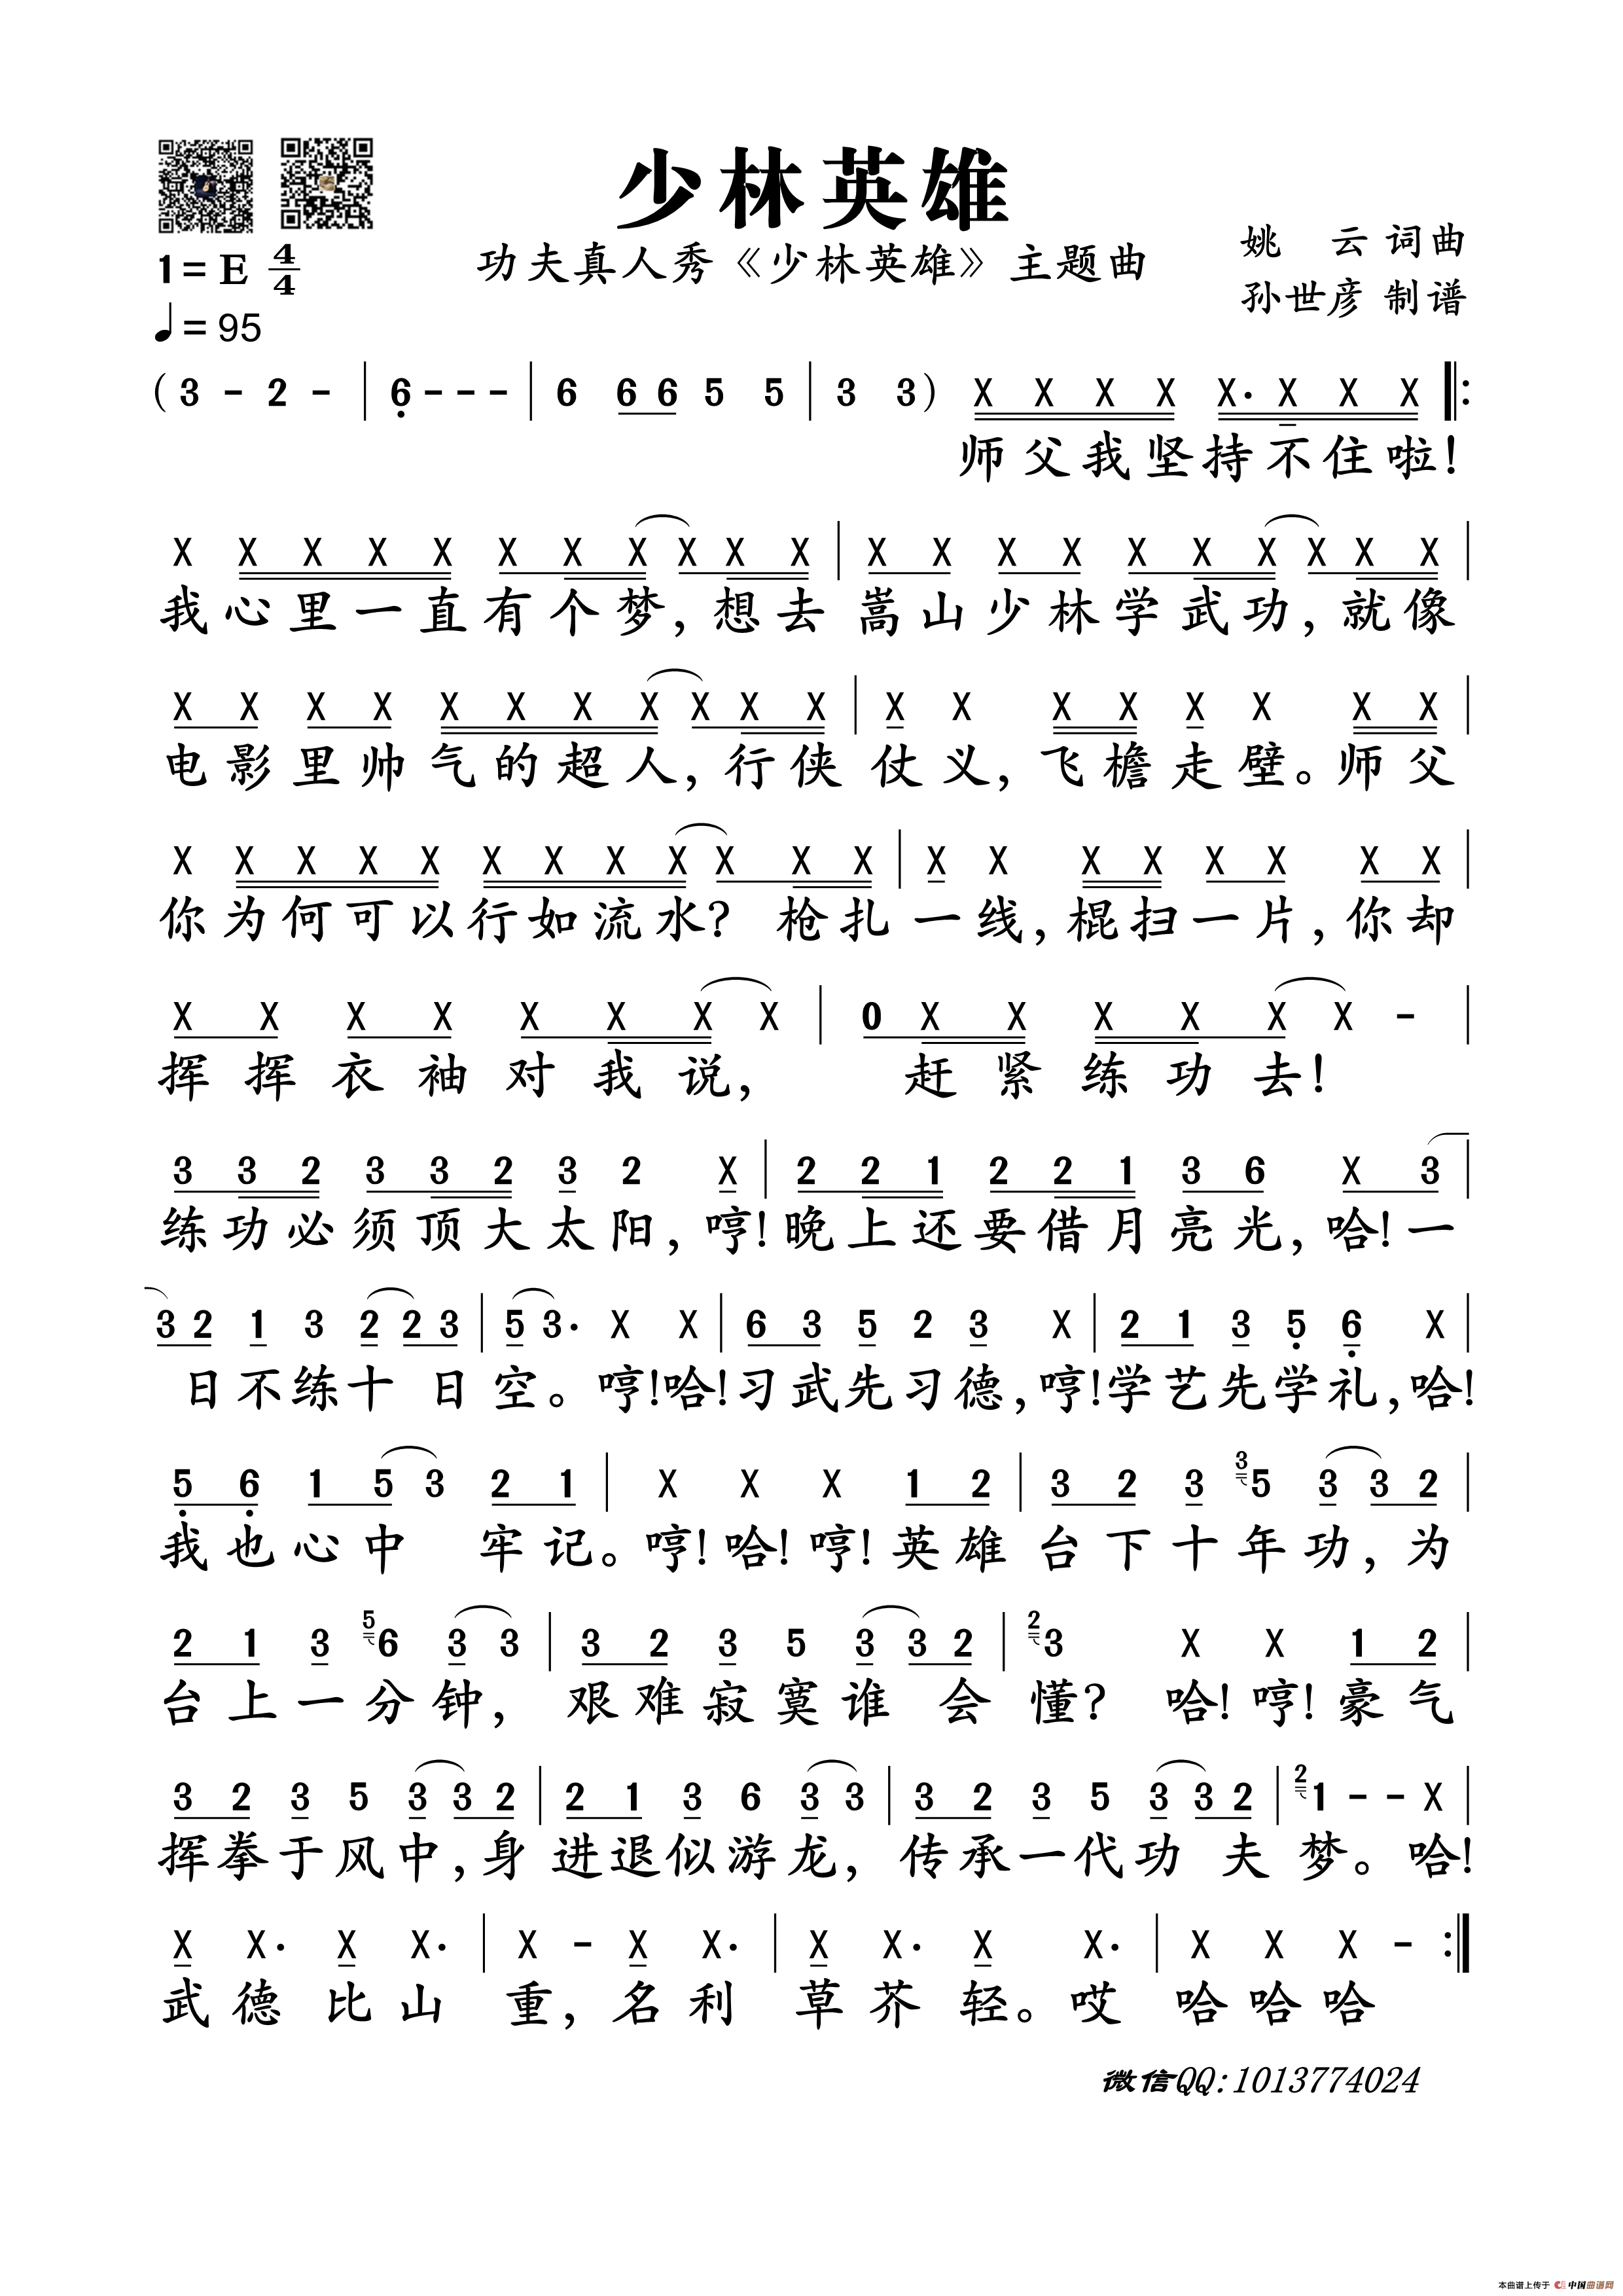 少林英雄
功夫真人秀《少林英雄》主题曲
姚 云 词曲
孙世彦 制谱
1=E 4/4
♩=95
(3 - 2 - | 6 - - - | 6 6 6 5 5 | 3 3) X X X X X. X X X ‖:
师父我坚持不住啦!
X X X X X X X X X X X | X X X X X X X X X X |
我心里一直有个梦,想去嵩山少林学武功,就像
X X X X X X X X X X X | X X X X X X X X |
电影里帅气的超人,行侠仗义,飞檐走壁。师父
X X X X X X X X X X X X | X X X X X X X X |
你为何可以行如流水?枪扎一线,棍扫一片,你却
X X X X X X X X | 0 X X X X X X - |
挥挥衣袖对我说,赶紧练功去!
3 3 2 3 3 2 3 2 X | 2 2 1 2 2 1 3 6 X 3 |
练功必须顶大太阳,哼!晚上还要借月亮光,哈!一
3 2 1 3 2 2 3 | 5 3. X X | 6 3 5 2 3 X | 2 1 3 5 6 X |
日不练十日空。哼!哈!习武先习德,哼!学艺先学礼,哈!
5 6 1 5 3 2 1 | X X X 1 2 | 3 2 3 3 5 3 3 2 |
我也心中牢记。哼!哈!哼!英雄台下十年功,为
2 1 3 5 6 3 3 | 3 2 3 5 3 3 2 | 2 3 X X 1 2 |
台上一分钟,艰难寂寞谁会懂?哈!哼!豪气
3 2 3 5 3 3 2 | 2 1 3 6 3 3 | 3 2 3 5 3 3 2 | 2 1 - - X |
挥拳于风中,身进退似游龙,传承一代功夫梦。哈!
X X. X X. | X - X X. | X X. X X. | X X X - :‖
武德比山重,名利草芥轻。哎哈哈哈
微信QQ:1013774024
本曲谱上传于 中国曲谱网